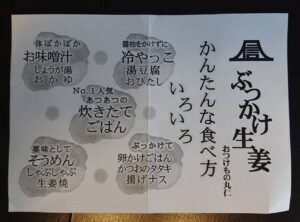 ぶっかけ生姜
おつけもの丸仁
かんたんな食べ方
いろいろ
醤油をかけずに
冷やっこ
湯豆腐
おひたし
体ぽかぽか
お味噌汁
しょうが湯
おかゆ
No.1人気
あつあつの
炊きたて
ごはん
ぶっかけて
卵かけごはん
かつおのタタキ
揚げナス
薬味として
そうめん
しゃぶしゃぶ
生姜焼